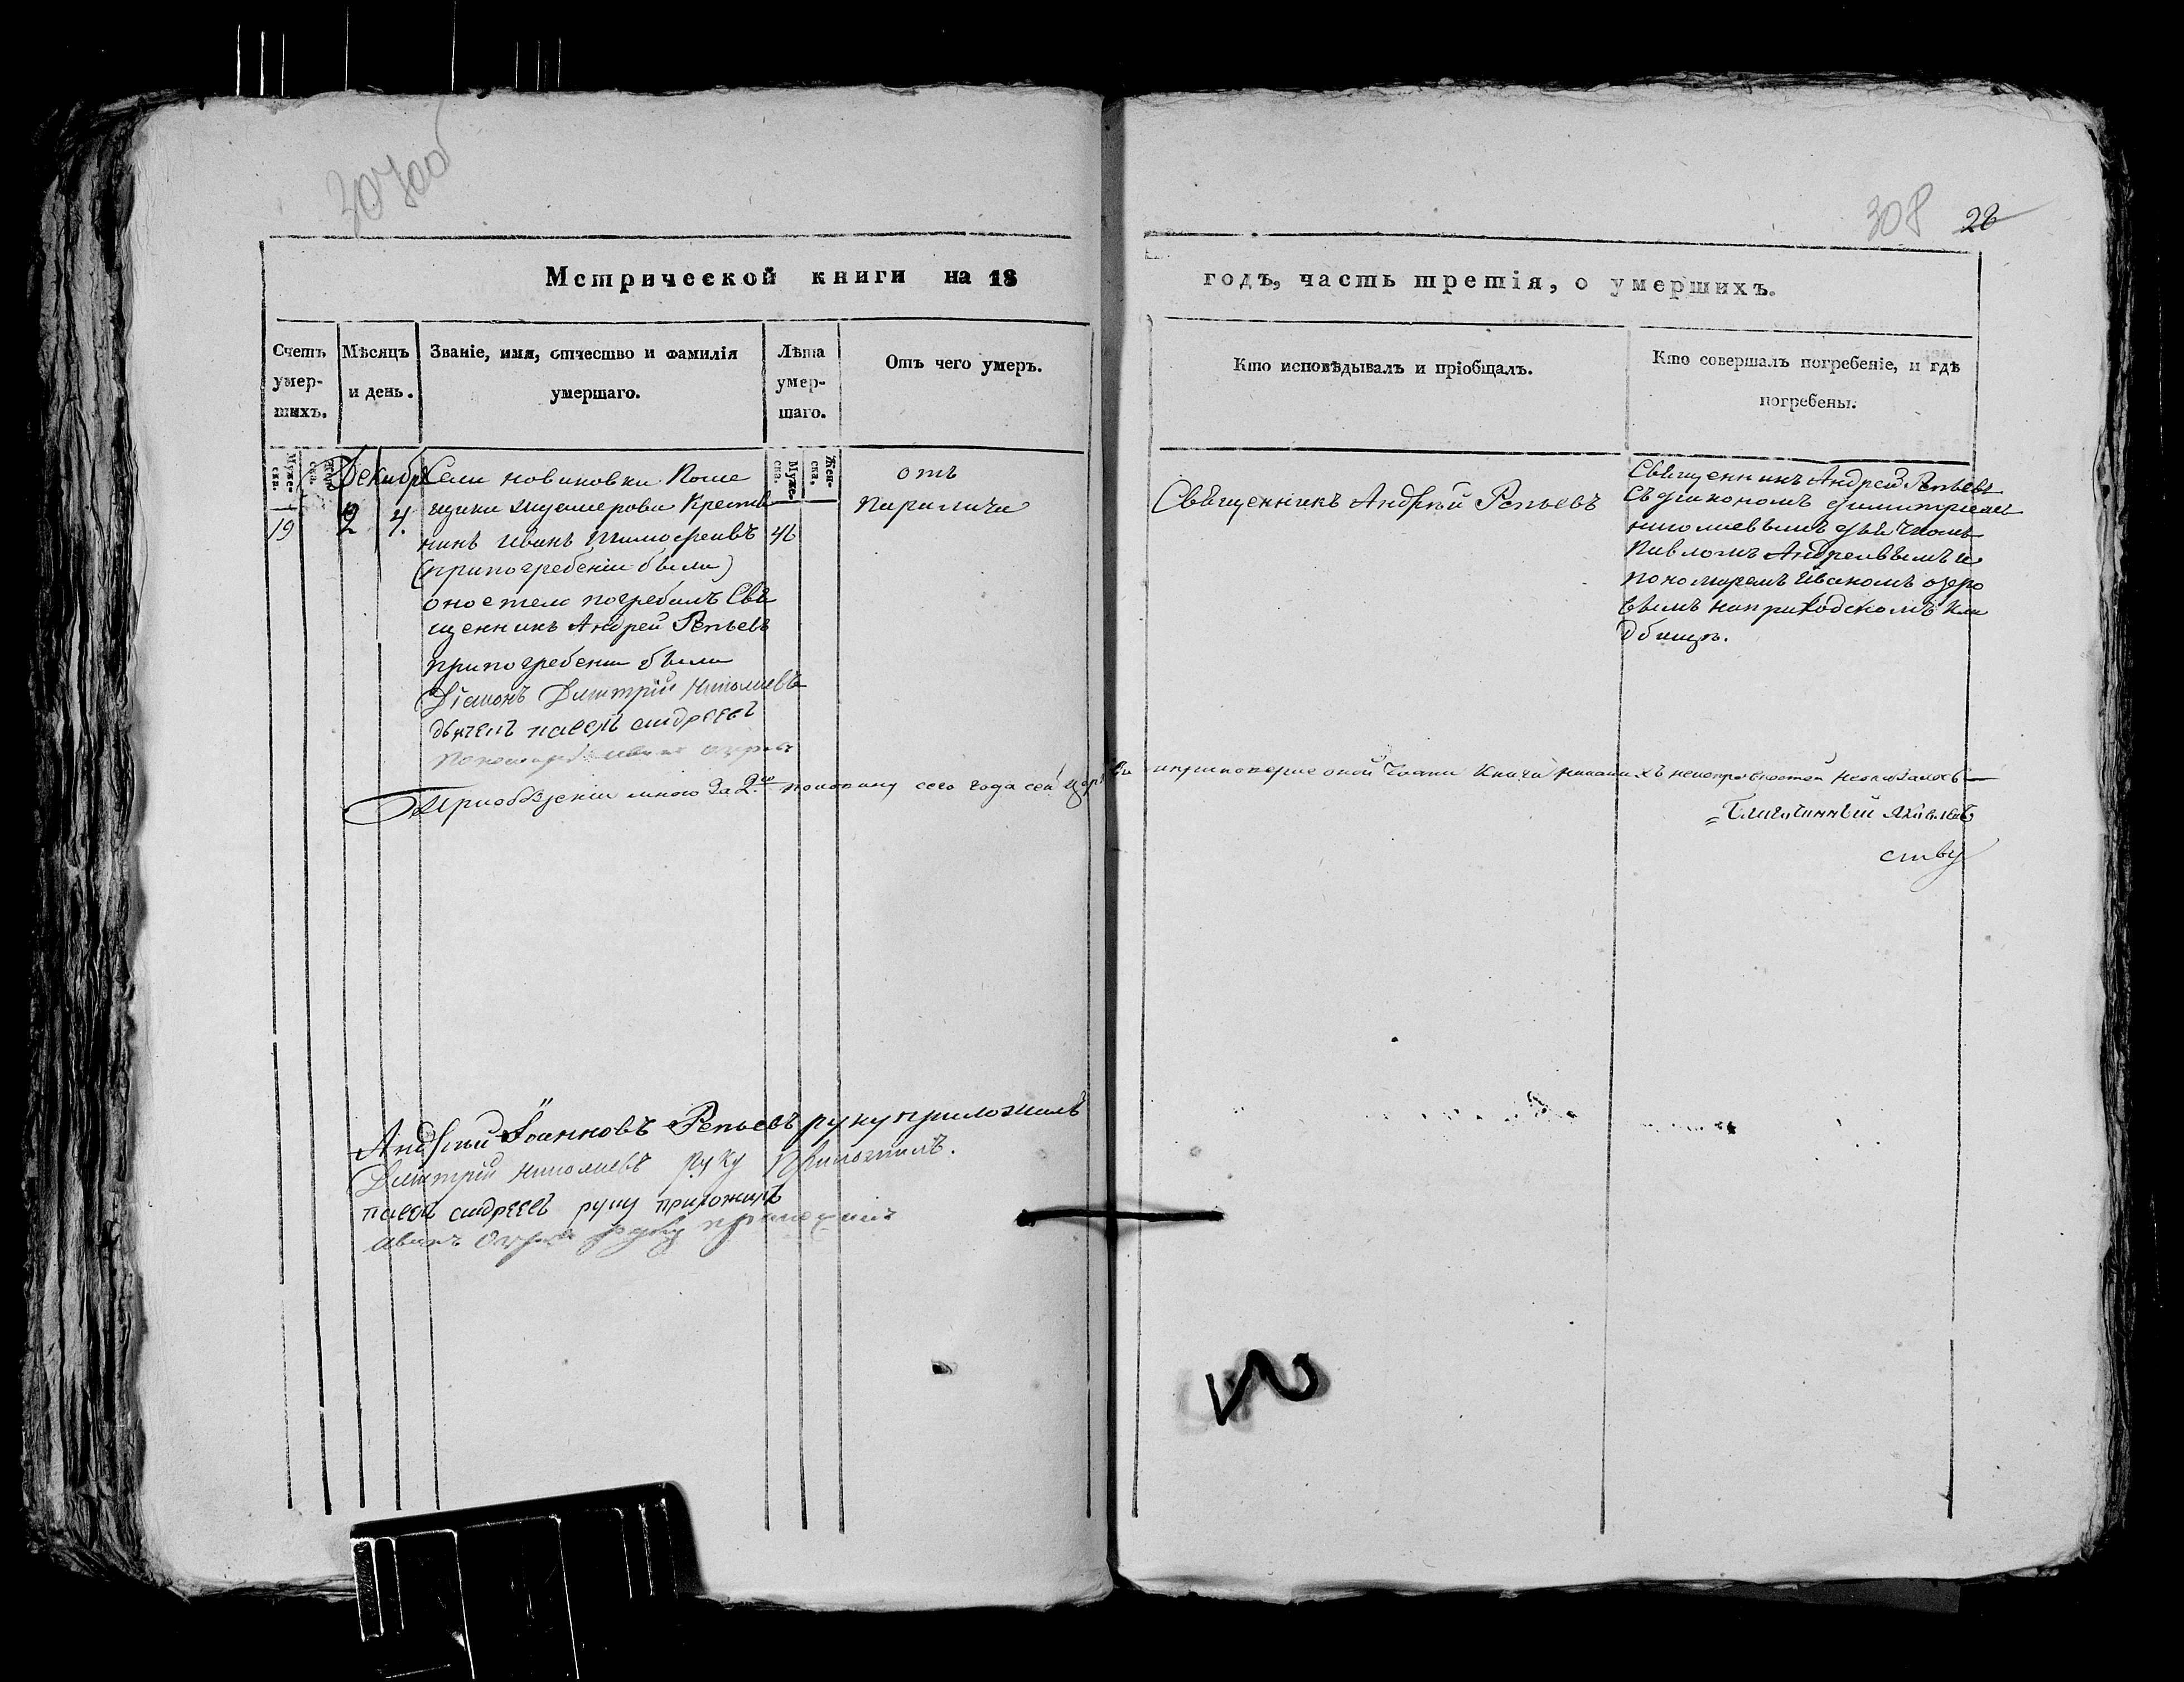 307об
308 28
Метрической книги на 18
годъ, часть третія, о умершихъ.
Счетъ умер-шихъ.
Мѣсяцъ и день.
Званіе, имя, отчество и фамилія умершаго.
Лѣта умер-шаго.
Отъ чего умеръ.
Кто исповѣдывалъ и пріобщалъ.
Кто совершалъ погребеніе, и гдѣ погребены.
Муже-ска.
Муже-ска.
Жен-ска.
Декабр
19
2 4.
Села новиковки Поме
щика Крестья
нинъ иванъ тимофеивъ
46
(припогребеніи были)
оное тело погребалъ Свя
щенникъ Андрей Репьевъ
припогребении были
Діаконъ Дмитрій николаевъ
дьячекъ павелъ андреевъ
отъ
паралича
Священникъ Андрѣй Репьевъ
Священникъ Андрей Репьевъ
съ діакономъ димитриемъ
николаевымъ дьячкомъ
Павломъ Андреевымъ и
пономаремъ Иваномъ озеро
вымъ наприходскомъ кла
дбищѣ.
мною За 2ю половину сего года сей
оной части книги неисправностей неоказалось
Благочинный Яковлевъ
Андрѣй Іоанновъ Репьевъ руку приложилъ
Дмитрій николаевъ руку Приложилъ.
павелъ андреевъ руку приложилъ
иванъ руку приложилъ